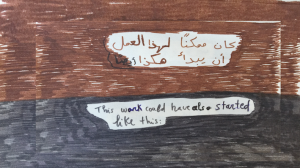 كان ممكنًا لهذا العمل
أن يبدأ هكذا أيضًا
This work could have also started
like this: